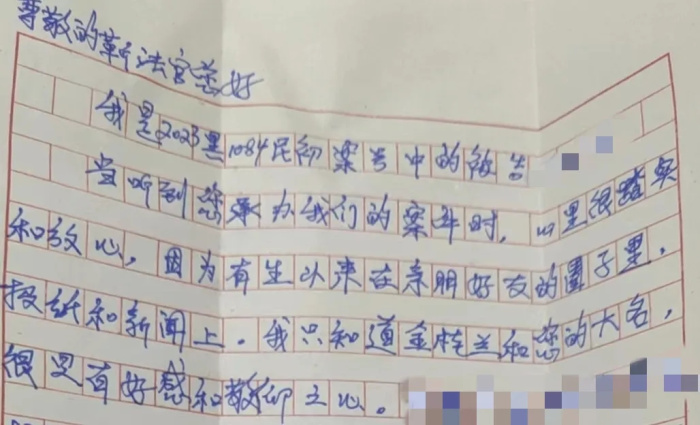 尊敬的靳法官您好
我是2023黑1084民初案号中的被告
当听到您承办我们的案件时，心里很踏实
和放心，因为有生以来在亲朋好友的圈子里，
报纸和新闻上，我只知道金桂兰和您的大名，
很是有好感和敬仰之心。